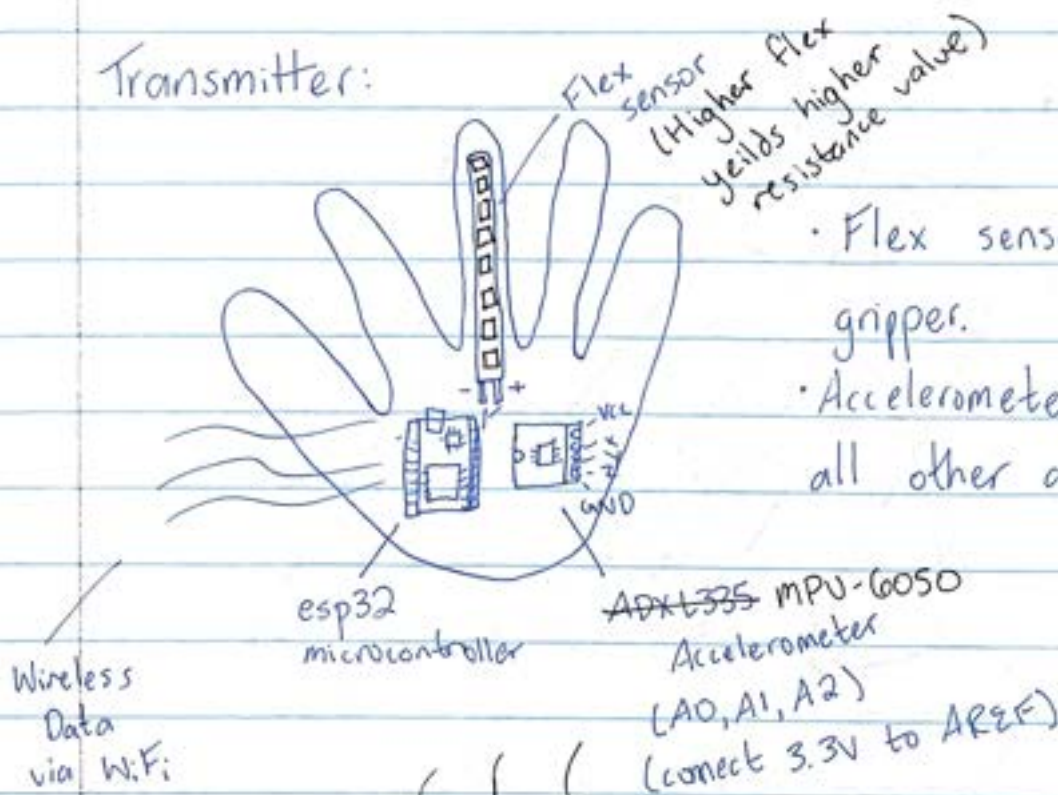 Transmitter:
Flex
sensor
(Higher flex
yeilds higher
resistance value)
· Flex sens
gripper.
· Acceleromete
all other a
- +
VCC
X
Y
Z
GND
esp32
microcontroller
ADXL335 MPU-6050
Accelerometer
(A0, A1, A2)
(connect 3.3V to AREF)
Wireless
Data
via WiFi